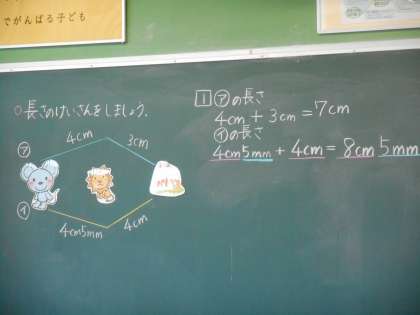 でがんばる子ども
○長さのけいさんをしましょう。
4cm
3cm
㋐
㋑
4cm5mm
4cm
1 ㋐の長さ
4cm + 3cm = 7cm
㋑の長さ
4cm5mm + 4cm = 8cm 5mm